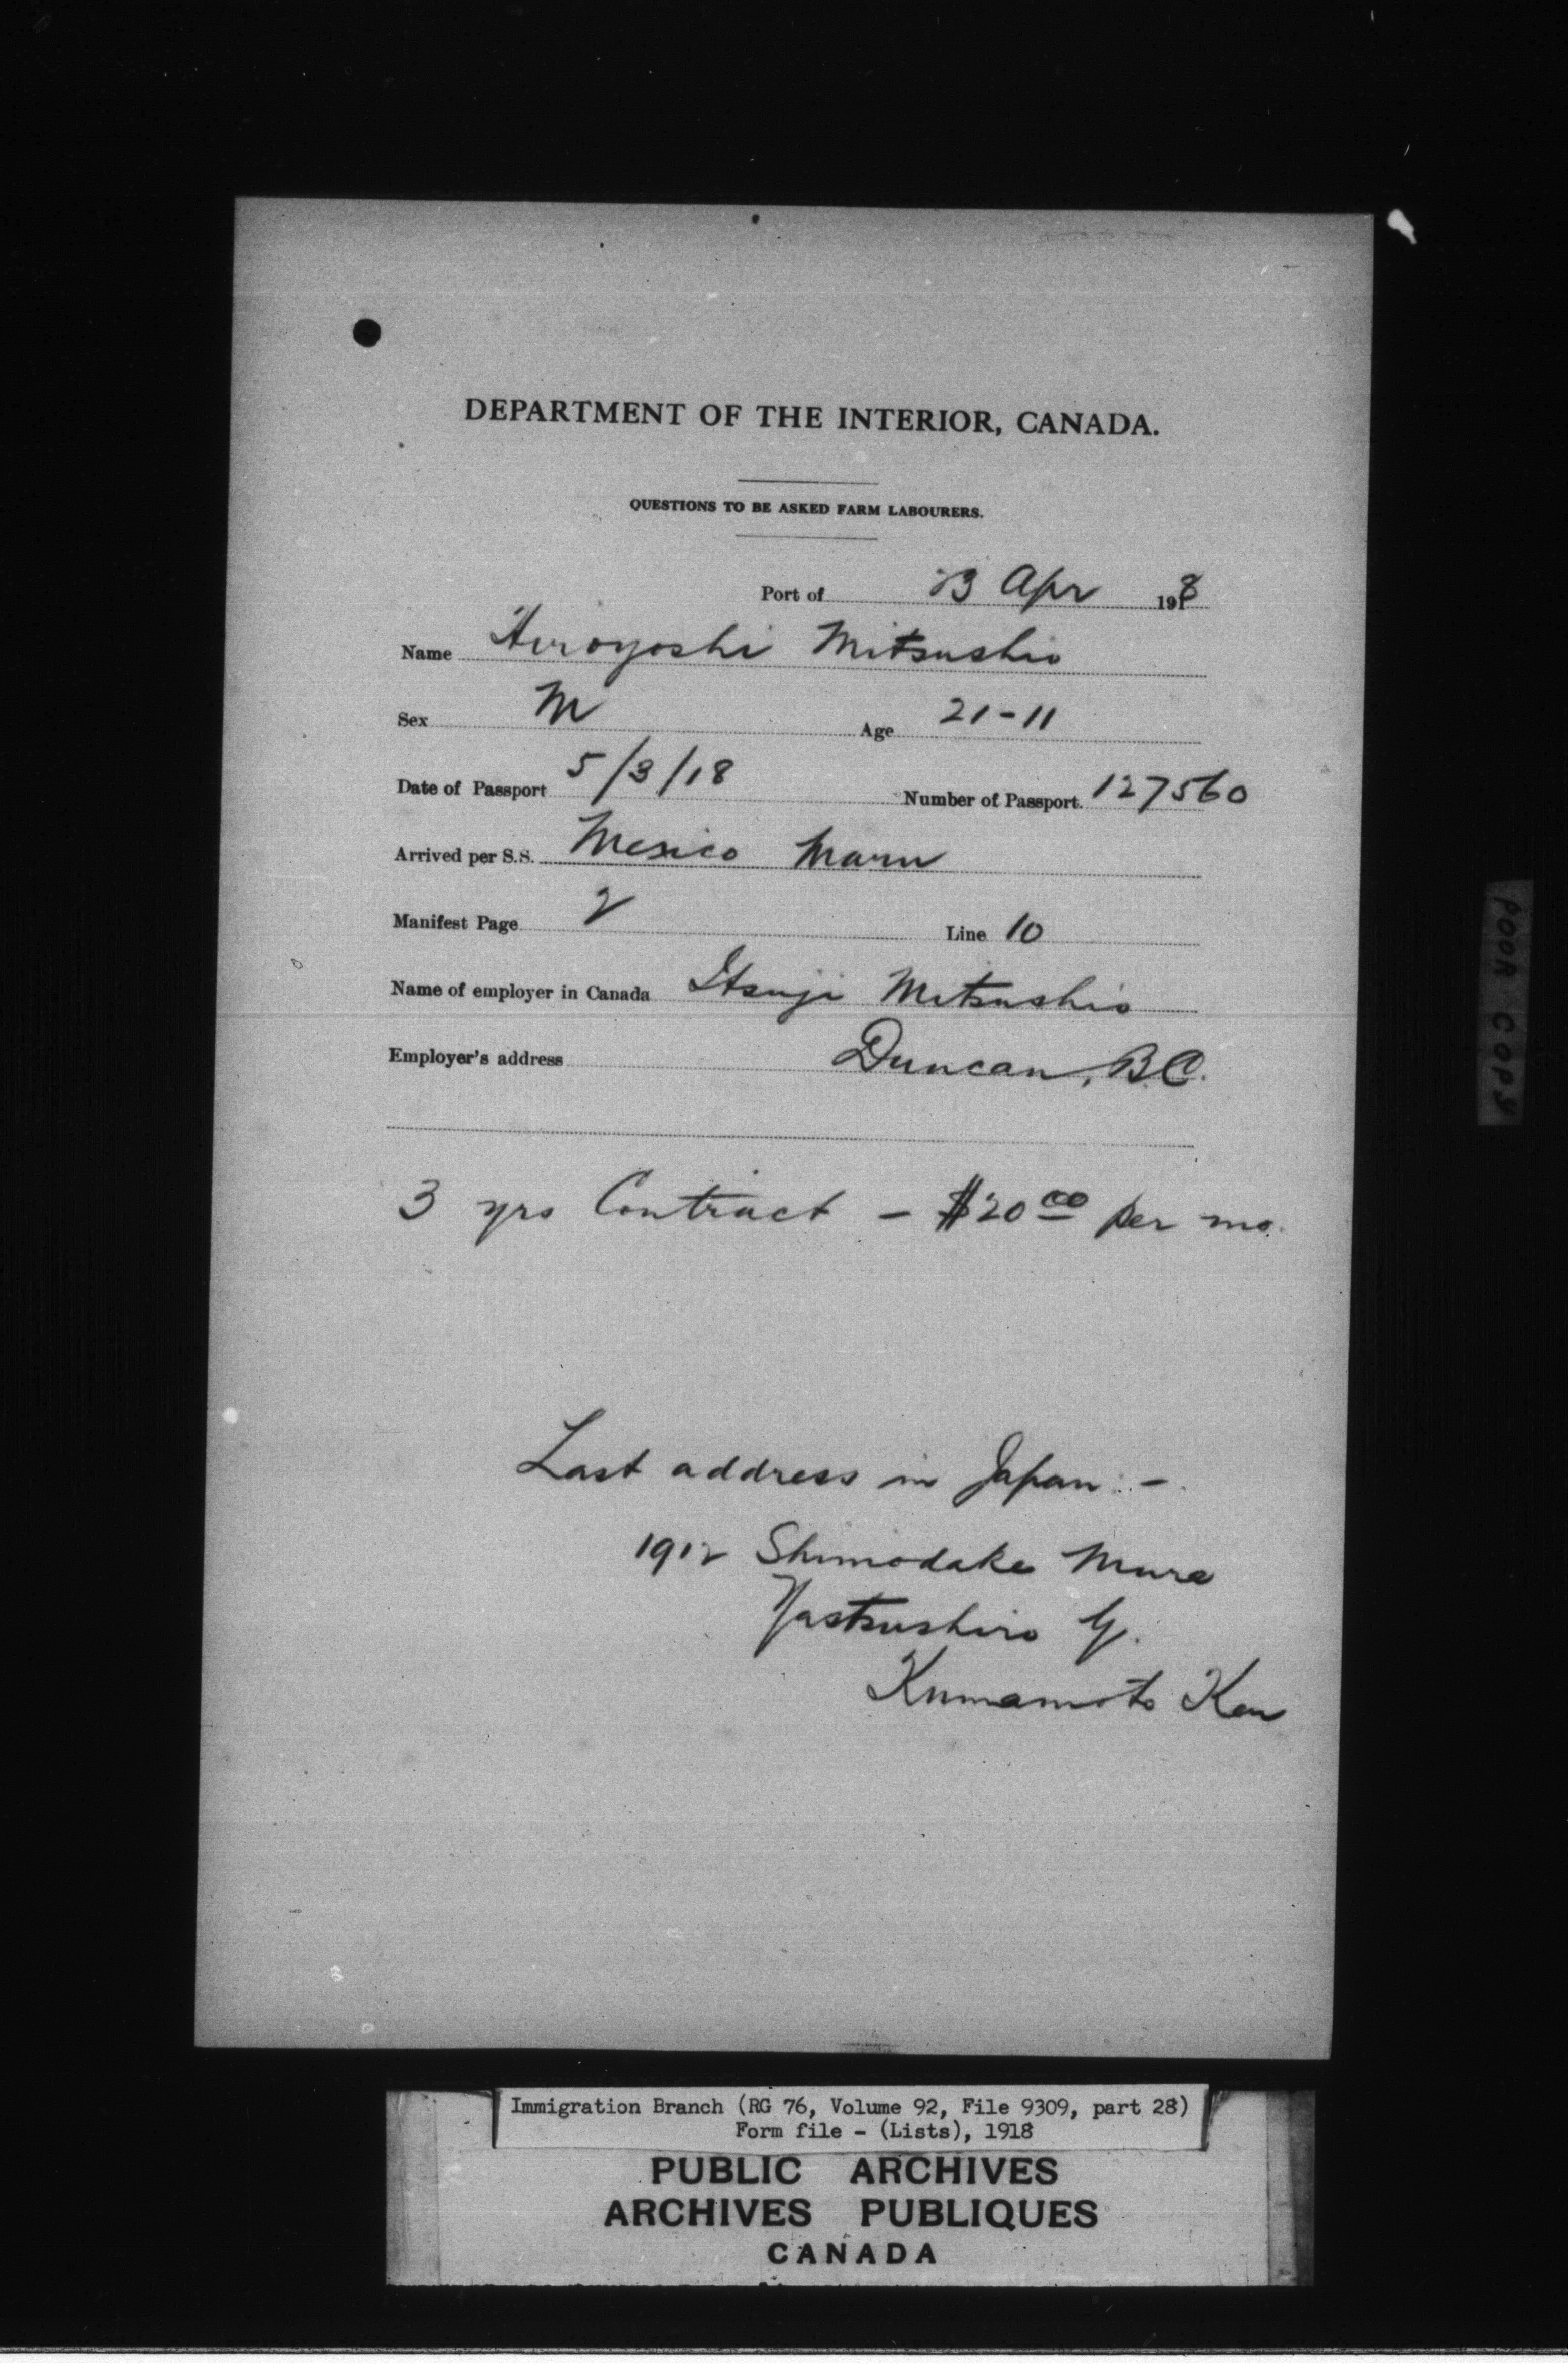 DEPARTMENT OF THE INTERIOR, CANADA.
QUESTIONS TO BE ASKED FARM LABOURERS.
Port of 13 Apr 1918
Name Hiroyoshi Mitsushio
Sex M Age 21-11
Date of Passport 5/3/18 Number of Passport. 127560
Arrived per S.S. Mexico Maru
Manifest Page 2 Line 10
Name of employer in Canada Itsuji Mitsushio
Employer's address Duncan, BC.
3 yrs Contract - $20 00 per mo.
Last address in Japan :-
1912 Shimodake Mura
Yastsushiro G.
Kumamoto Ken
POOR COPY
Immigration Branch (RG 76, Volume 92, File 9309, part 28)
Form file - (Lists), 1918
PUBLIC ARCHIVES
ARCHIVES PUBLIQUES
CANADA